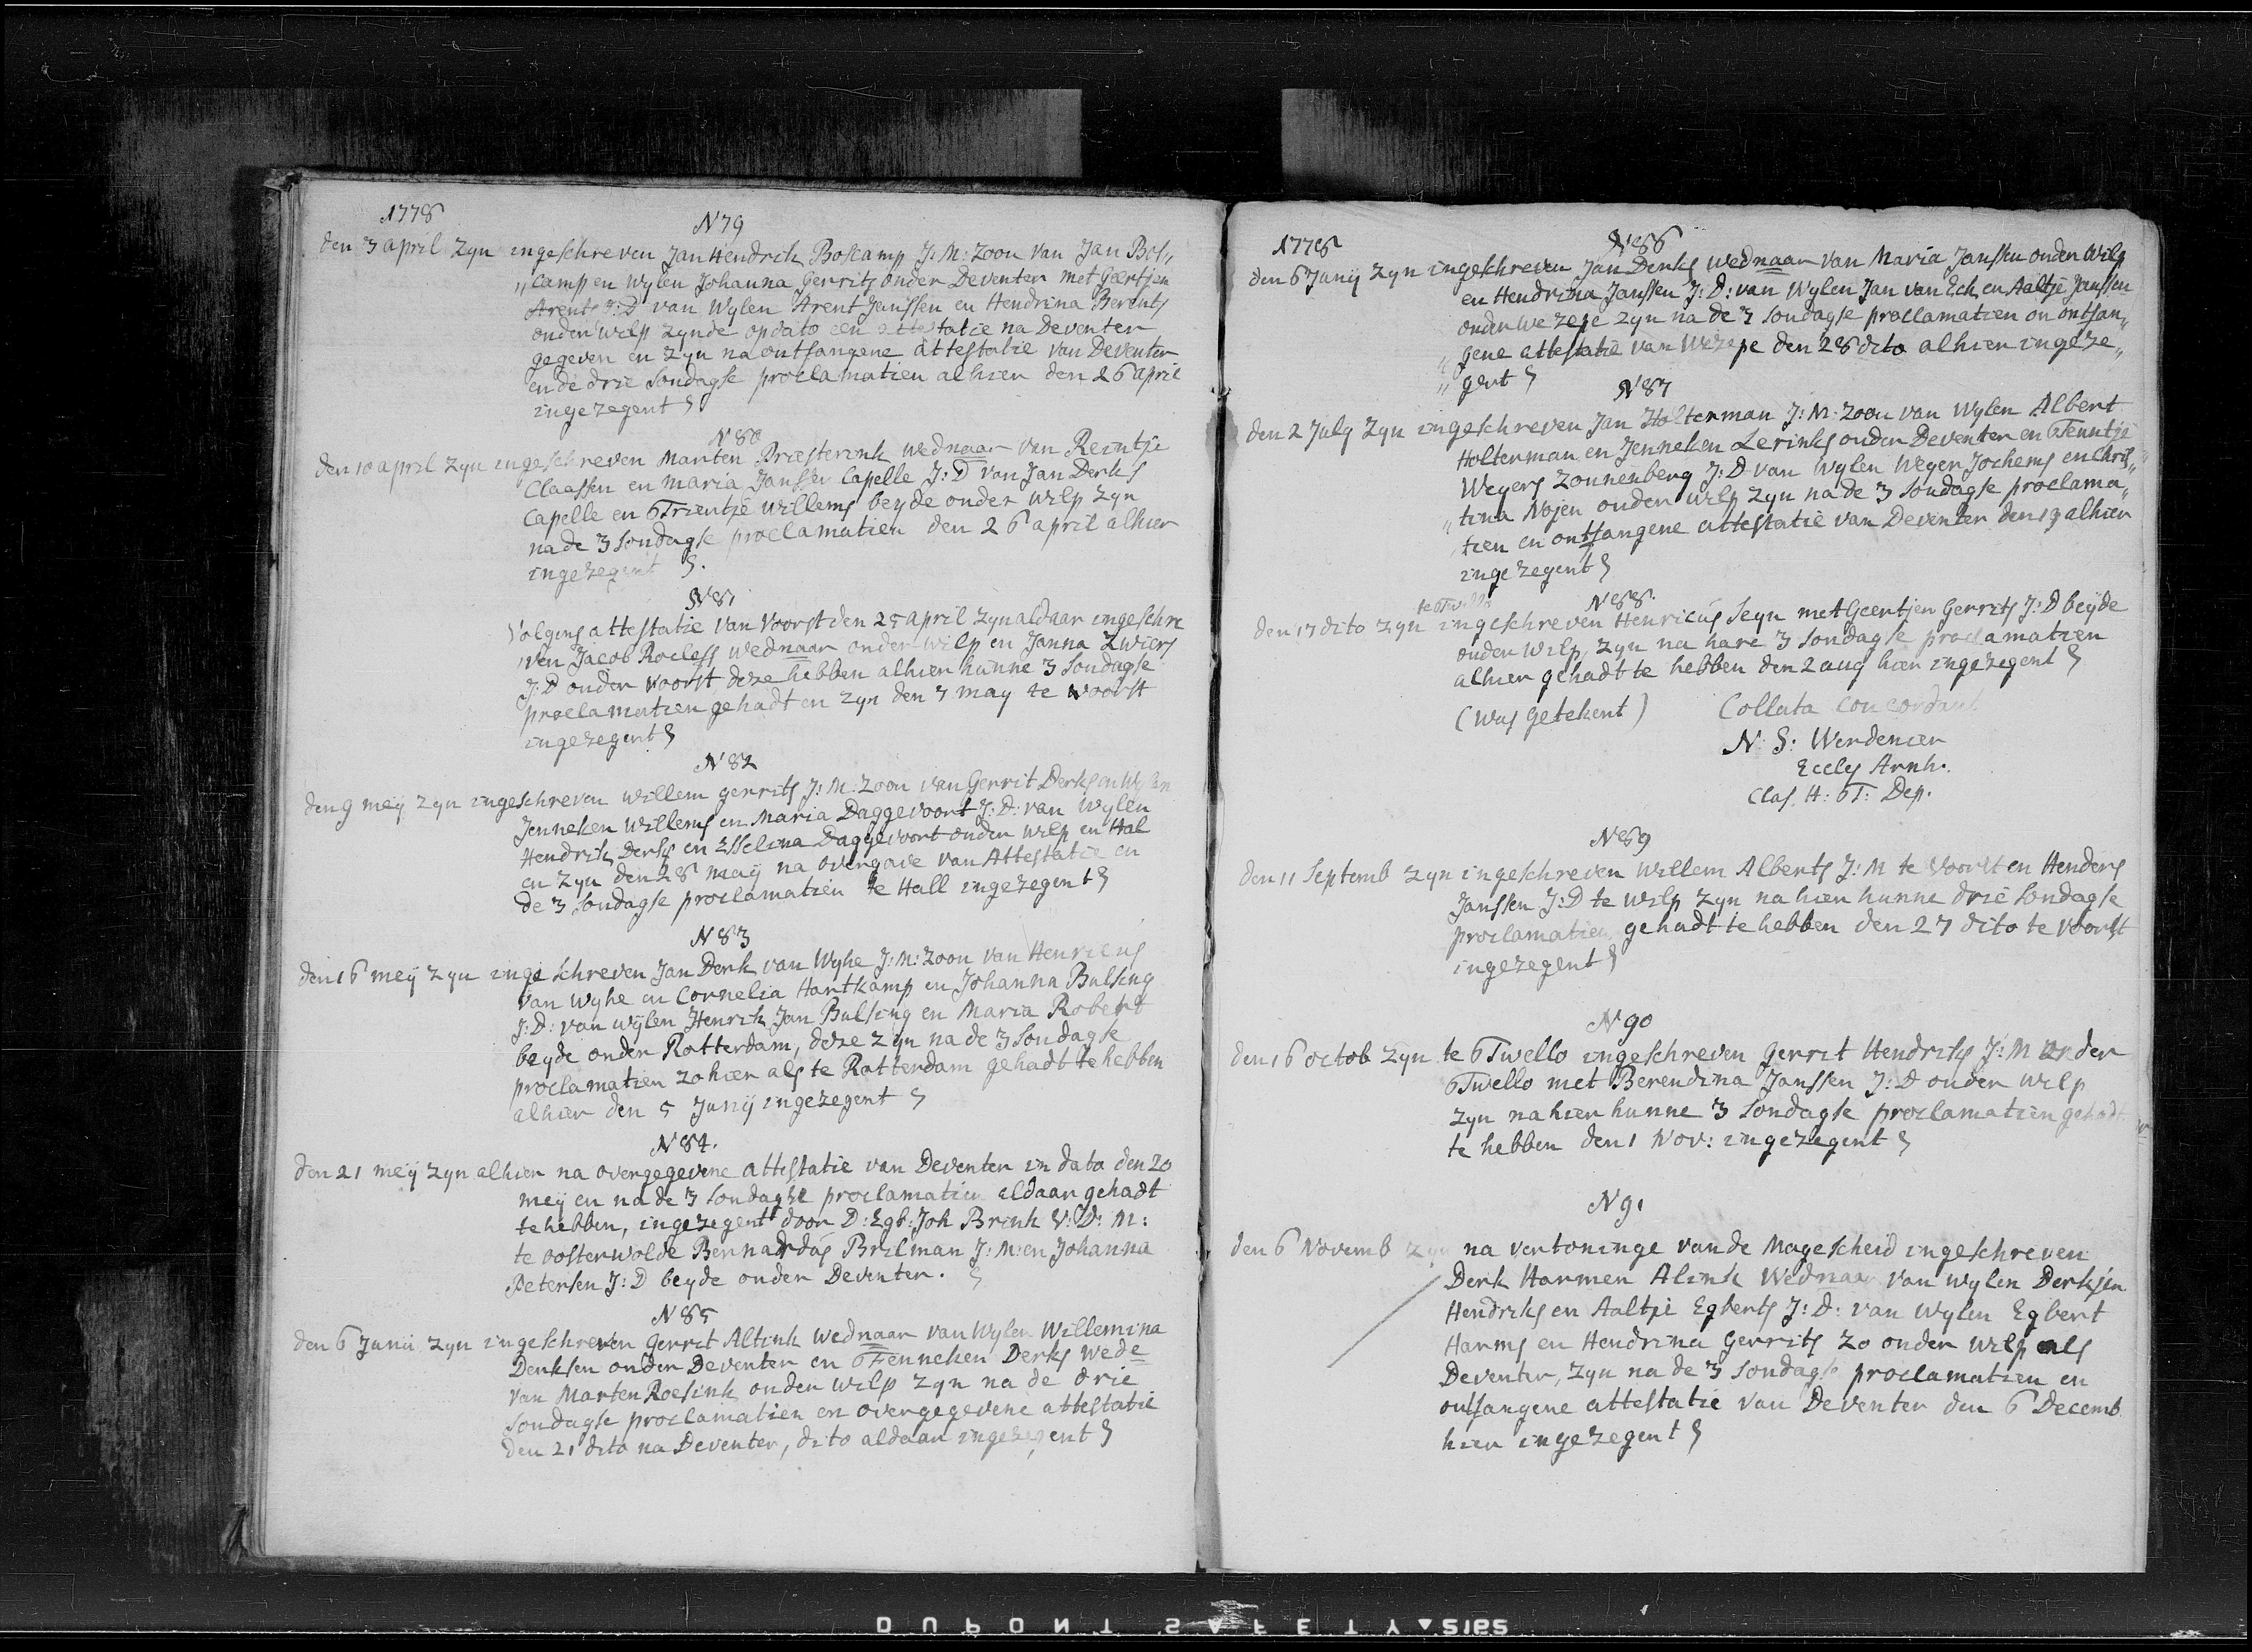 1778
N 79
den 3 april zyn ingeschreven Jan Hendrik Boskamp J: M: zoon van Jan Bos„
„camp en wylen Johanna Gerrits onder Deventer met Geertjen
Arents J:D van Wylen Arent Janssen en Hendrina Berents
onder wilp zynde op dato een attestatie na Deventer
gegeven en zyn na ontfangene attestatie van Deventer
en de drie sondagse proclamatien alhier den 26 april
ingezegent
N 80
den 10 april zyn ingeschreven Marten Priesterink wednaar van Reintje
Claassen en Maria Janssen Capelle J: D van Jan Derks
Capelle en Trientje Willems beyde onder wilp zyn
na de 3 sondagse proclamatien den 26 april alhier
ingezegent
N 81
Volgens attestatie van Voorst den 25 april zyn aldaar ingeschre
„ven Jacob Roeless wednaar onder wilp en Janna Zwiers
J: D onder voorst deze hebben alhier hunne 3 sondagse
proclamatien gehadt en zyn den 3 may te voorst
ingezegent
N 82
den 9 meij zyn ingeschreven willem gerrits J: M: zoon van Gerrit Derks en Wylen
Jenneken Willems en Maria Daggevoort J: D: van Wylen
Hendrik Derks en Esselina Daggevoort onder wilp en Hal
en zyn den 28 maij na overgave van Attestatie en
de 3 sondagse proclamatien te Hall ingezegent
N 83
den 16 meij zyn ingeschreven Jan Derk van Wyhe J: M: zoon van Henricus
van Wyhe en Cornelia Hartkamp en Johanna Bulsing
J: D: van wylen Henrik Jan Bulsing en Maria Robert
beyde onder Rotterdam, deze zyn na de 3 sondagse
proclamatien zo hier als te Rotterdam gehadt te hebben
alhier den 5 Junij ingezegent
N 84.
den 21 meij zyn alhier na overgegevene attestatie van Deventer in dato den 20
meij en na de 3 sondagse proclamatien aldaar gehadt
te hebben, ingezegent door D: Egb: Joh Brink V: D: M:
te oosterwolde Bernardus Brilman J: M: en Johanna
Petersen J: D beyde onder Deventer.
N 85
den 6 Junii zyn ingeschreven Gerrit Altink wednaar van Wylen Willemina
Derksen onder Deventer en Fenneken Derks wede
van Marten Roesink onder wilp zyn na de drie
sondagse proclamatien en overgegevene attestatie
den 21 dito na Deventer, dito aldaar ingezegent
1778
N 86
den 6 Junij zyn ingeschreven Jan Derks wednaar van Maria Janssen onder Wilp
en Hendrina Janssen J: D: van Wylen Jan van Eck en Aaltje Janssen
onder Wezepe zyn na de 3 sondagse proclamatien en ontfan„
„gene attestatie van Wezepe den 28 dito alhier ingeze„
„gent
N 87
den 2 July zyn ingeschreven Jan Holterman J: M: zoon van Wylen Albert
Holterman en Jenneken Lerinks onder Deventer en Tenntje
Wegers Zonnenberg J: D van Wylen Weger Jochems en Chris„
„tina Nojen onder wilp zyn na de 3 sondagse proclama„
tien en ontfangene attestatie van Deventer den 19 alhier
ingezegent
N 88.
te Twello
den 17 dito zyn ingeschreven Henricus Seyn met Geertjen Gerrits J: D beyde
onder Wilp, zyn na hare 3 sondagse proclamatien
alhier gehadt te hebben den 2 aug hier ingezegent
(was getekent) Collata concordant
N: S: Werdenier
Eccles Arnh.
Clas. H: T: Dep.
N 89
den 11 Septemb zyn ingeschreven Willem Alberts J: M te Voorst en Henders
Janssen J: D te Wilp zyn na hier hunne drie sondagse
proclamatien gehadt te hebben den 27 dito te voorst
ingezegent
N 90
den 16 octob zyn te Twello ingeschreven Gerrit Hendriks J: M onder
Twello met Berendina Janssen J: D onder wilp
zyn na hier hunne 3 sondagse proclamatien gehadt
te hebben den 1 Nov: ingezegent
N 91
den 6 Novemb zyn na vertoninge van de Magescheid ingeschreven
Derk Harmen Alink Wednaar van wylen Derkjen
Hendriks en Aaltje Egberts J: D: van Wylen Egbert
Harms en Hendrina Gerrits zo onder wilp als
Deventer, zyn na de 3 sondagse proclamatien en
ontfangene attestatie van Deventer den 6 Decemb
hier ingezegent
DUPONT SAFETY